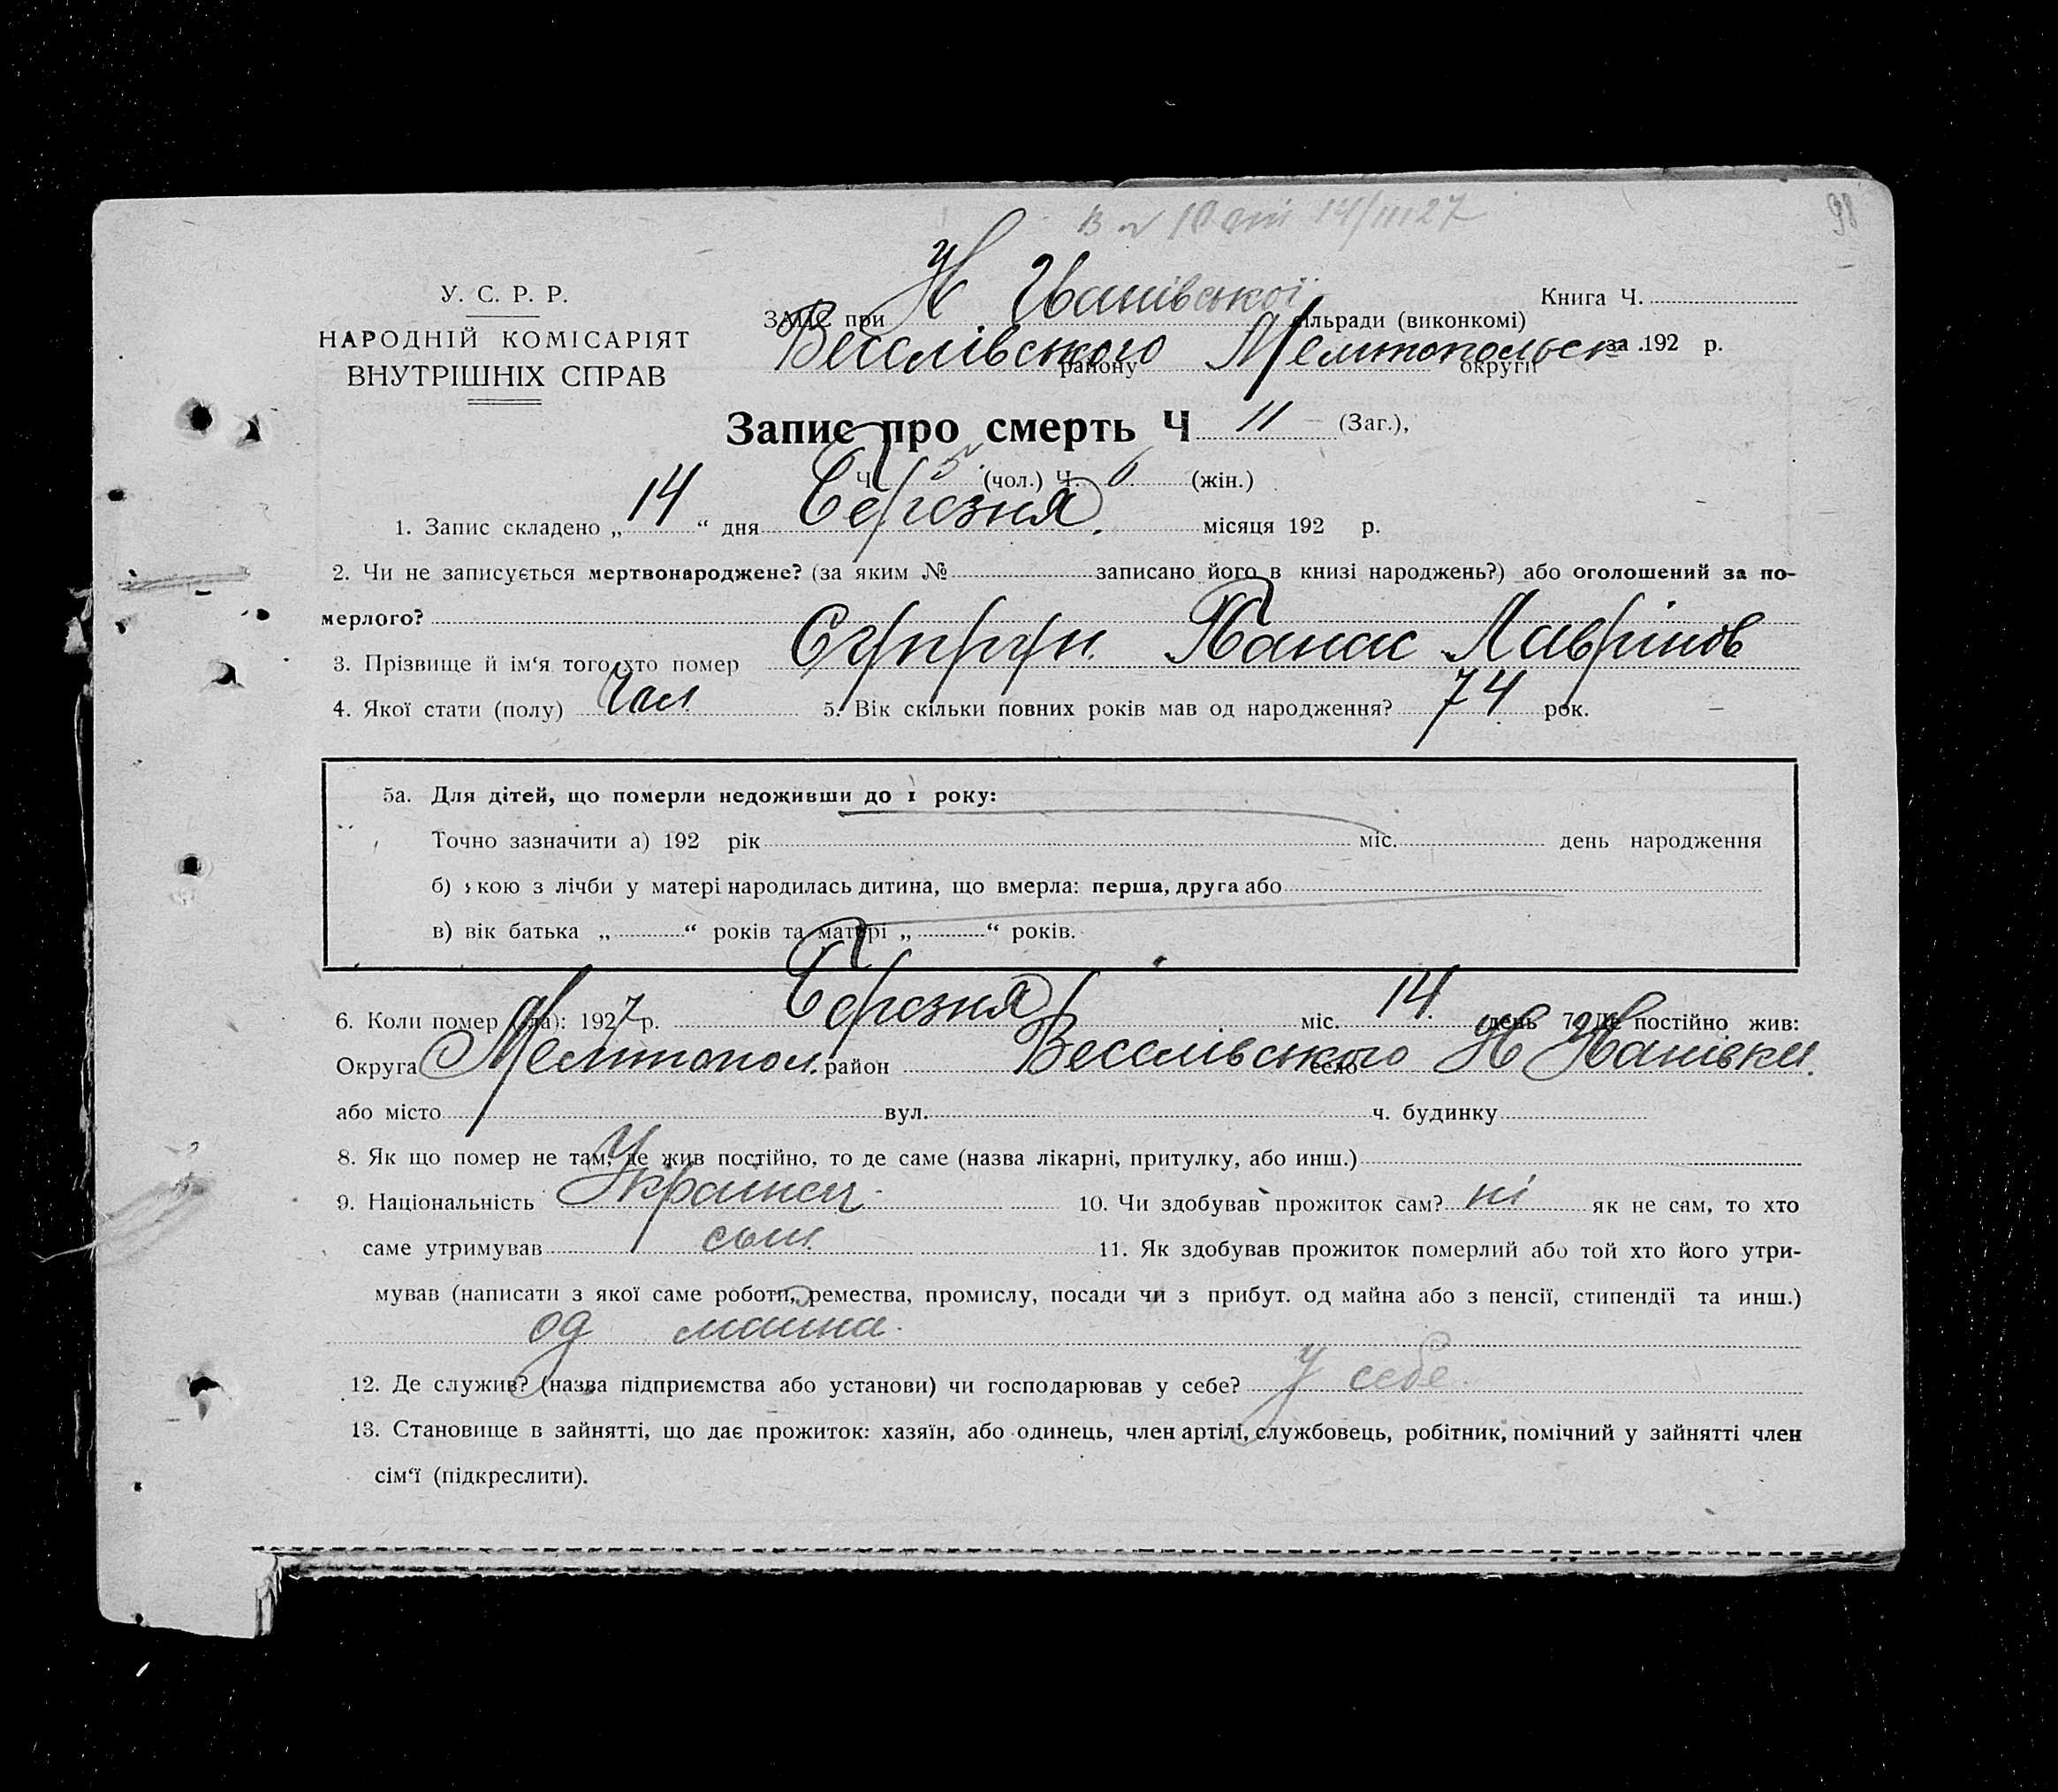 14/III 27
98
У. С. Р. Р.
НАРОДНІЙ КОМІСАРІЯТ
ВНУТРІШНІХ СПРАВ
Книга Ч.
ЗАГС при Н Іванівської сільради (виконкомі)
Веселівського району Мелітопольськ округи за 192 р.
Запис про смерть Ч 11 (Заг.),
Ч. 5 (чол.) Ч. 6 (жін.)
1. Запис складено „14“ дня Березня місяця 192 р.
2. Чи не записується мертвонароджене? (за яким № записано його в книзі народжень?) або оголошений за по-
мерлого?
3. Прізвище й ім‘я того хто помер Супрун Панас Лаврінов
4. Якої стати (полу) Чол. 5. Вік скільки повних років мав од народження? 74 рок.
5а. Для дітей, що померли недоживши до 1 року:
Точно зазначити а) 192 рік міс. день народження
б) якою з лічби у матері народилась дитина, що вмерла: перша, друга або
в) вік батька „ “ років та матері „ “ років.
6. Коли помер (ла): 1927 р. Березня міс. 14 день 7. Де постійно жив:
Округа Мелітопол. район Веселівського село Н Іванівки.
або місто вул. ч. будинку
8. Як що помер не там, де жив постійно, то де саме (назва лікарні, притулку, або инш.)
9. Національність Українец 10. Чи здобував прожиток сам? ні як не сам, то хто
саме утримував сын. 11. Як здобував прожиток померлий або той хто його утри-
мував (написати з якої саме роботи, ремества, промислу, посади чи з прибут. од майна або з пенсії, стипендії та инш.)
од майна.
12. Де служив? (назва підприємства або установи) чи господарював у себе? у себе
13. Становище в зайнятті, що дає прожиток: хазяїн, або одинець, член артілі, службовець, робітник, помічний у зайнятті член
сім‘ї (підкреслити).